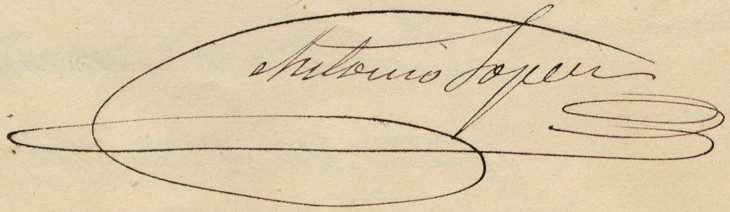 Antonio Lopez